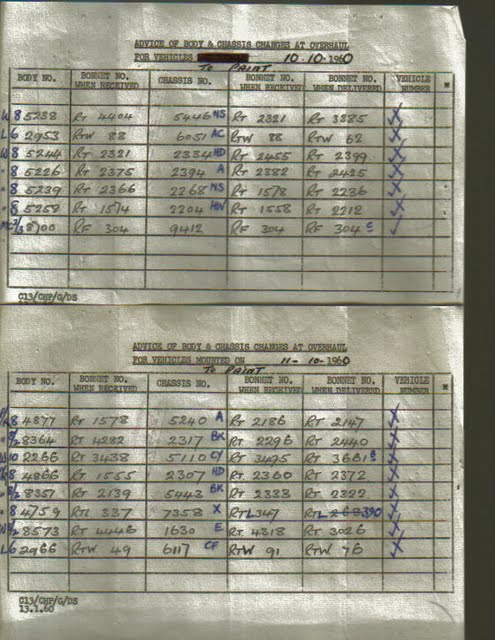 ADVICE OF BODY & CHASSIS CHANGES AT OVERHAUL
FOR VEHICLES 10.10.1960
TO PAINT
BODY NO. BONNET NO. WHEN RECEIVED CHASSIS NO. BONNET NO. WHEN RECEIVED BONNET NO. WHEN DELIVERED VEHICLE NUMBER
W 8 5238 RT 4404 5446 NS RT 2321 RT 3885 X
L6 2953 RTW 88 6051 AC RTW 88 RTW 62 X
W 8 5244 RT 2321 2334 HD RT 2455 RT 2399 X
" 8 5226 RT 2375 2394 A RT 2382 RT 2425 X
" 8 5239 RT 2366 2268 NS RT 1578 RT 2236 X
" 8 5258 RT 1574 2204 HW RT 1558 RT 2212 X
8700 RF 304 9412 RF 304 RF 304 C ✓
C13/CHP/G/DS
ADVICE OF BODY & CHASSIS CHANGES AT OVERHAUL
FOR VEHICLES MOUNTED ON 11-10-1960
TO PAINT
BODY NO. BONNET NO. WHEN RECEIVED CHASSIS NO. BONNET NO. WHEN RECEIVED BONNET NO. WHEN DELIVERED VEHICLE NUMBER
8 4877 RT 1578 5240 A RT 2186 RT 2147 X
8364 RT 4282 2317 BK RT 2296 RT 2440 X
10 2266 RT 3438 5110 CY RT 3495 RT 3661 X
8 4866 RT 1555 2307 HD RT 2360 RT 2372 X
8351 RT 2139 5443 BK RT 2333 RT 2322 X
" 8 4759 RTL 337 7358 X RTL 347 RTL 390 X
8573 RT 4446 1630 E RT 4318 RT 3026 X
L6 2966 RTW 49 6117 CF RTW 91 RTW 76 X
C13/CHP/G/DS
13.1.60